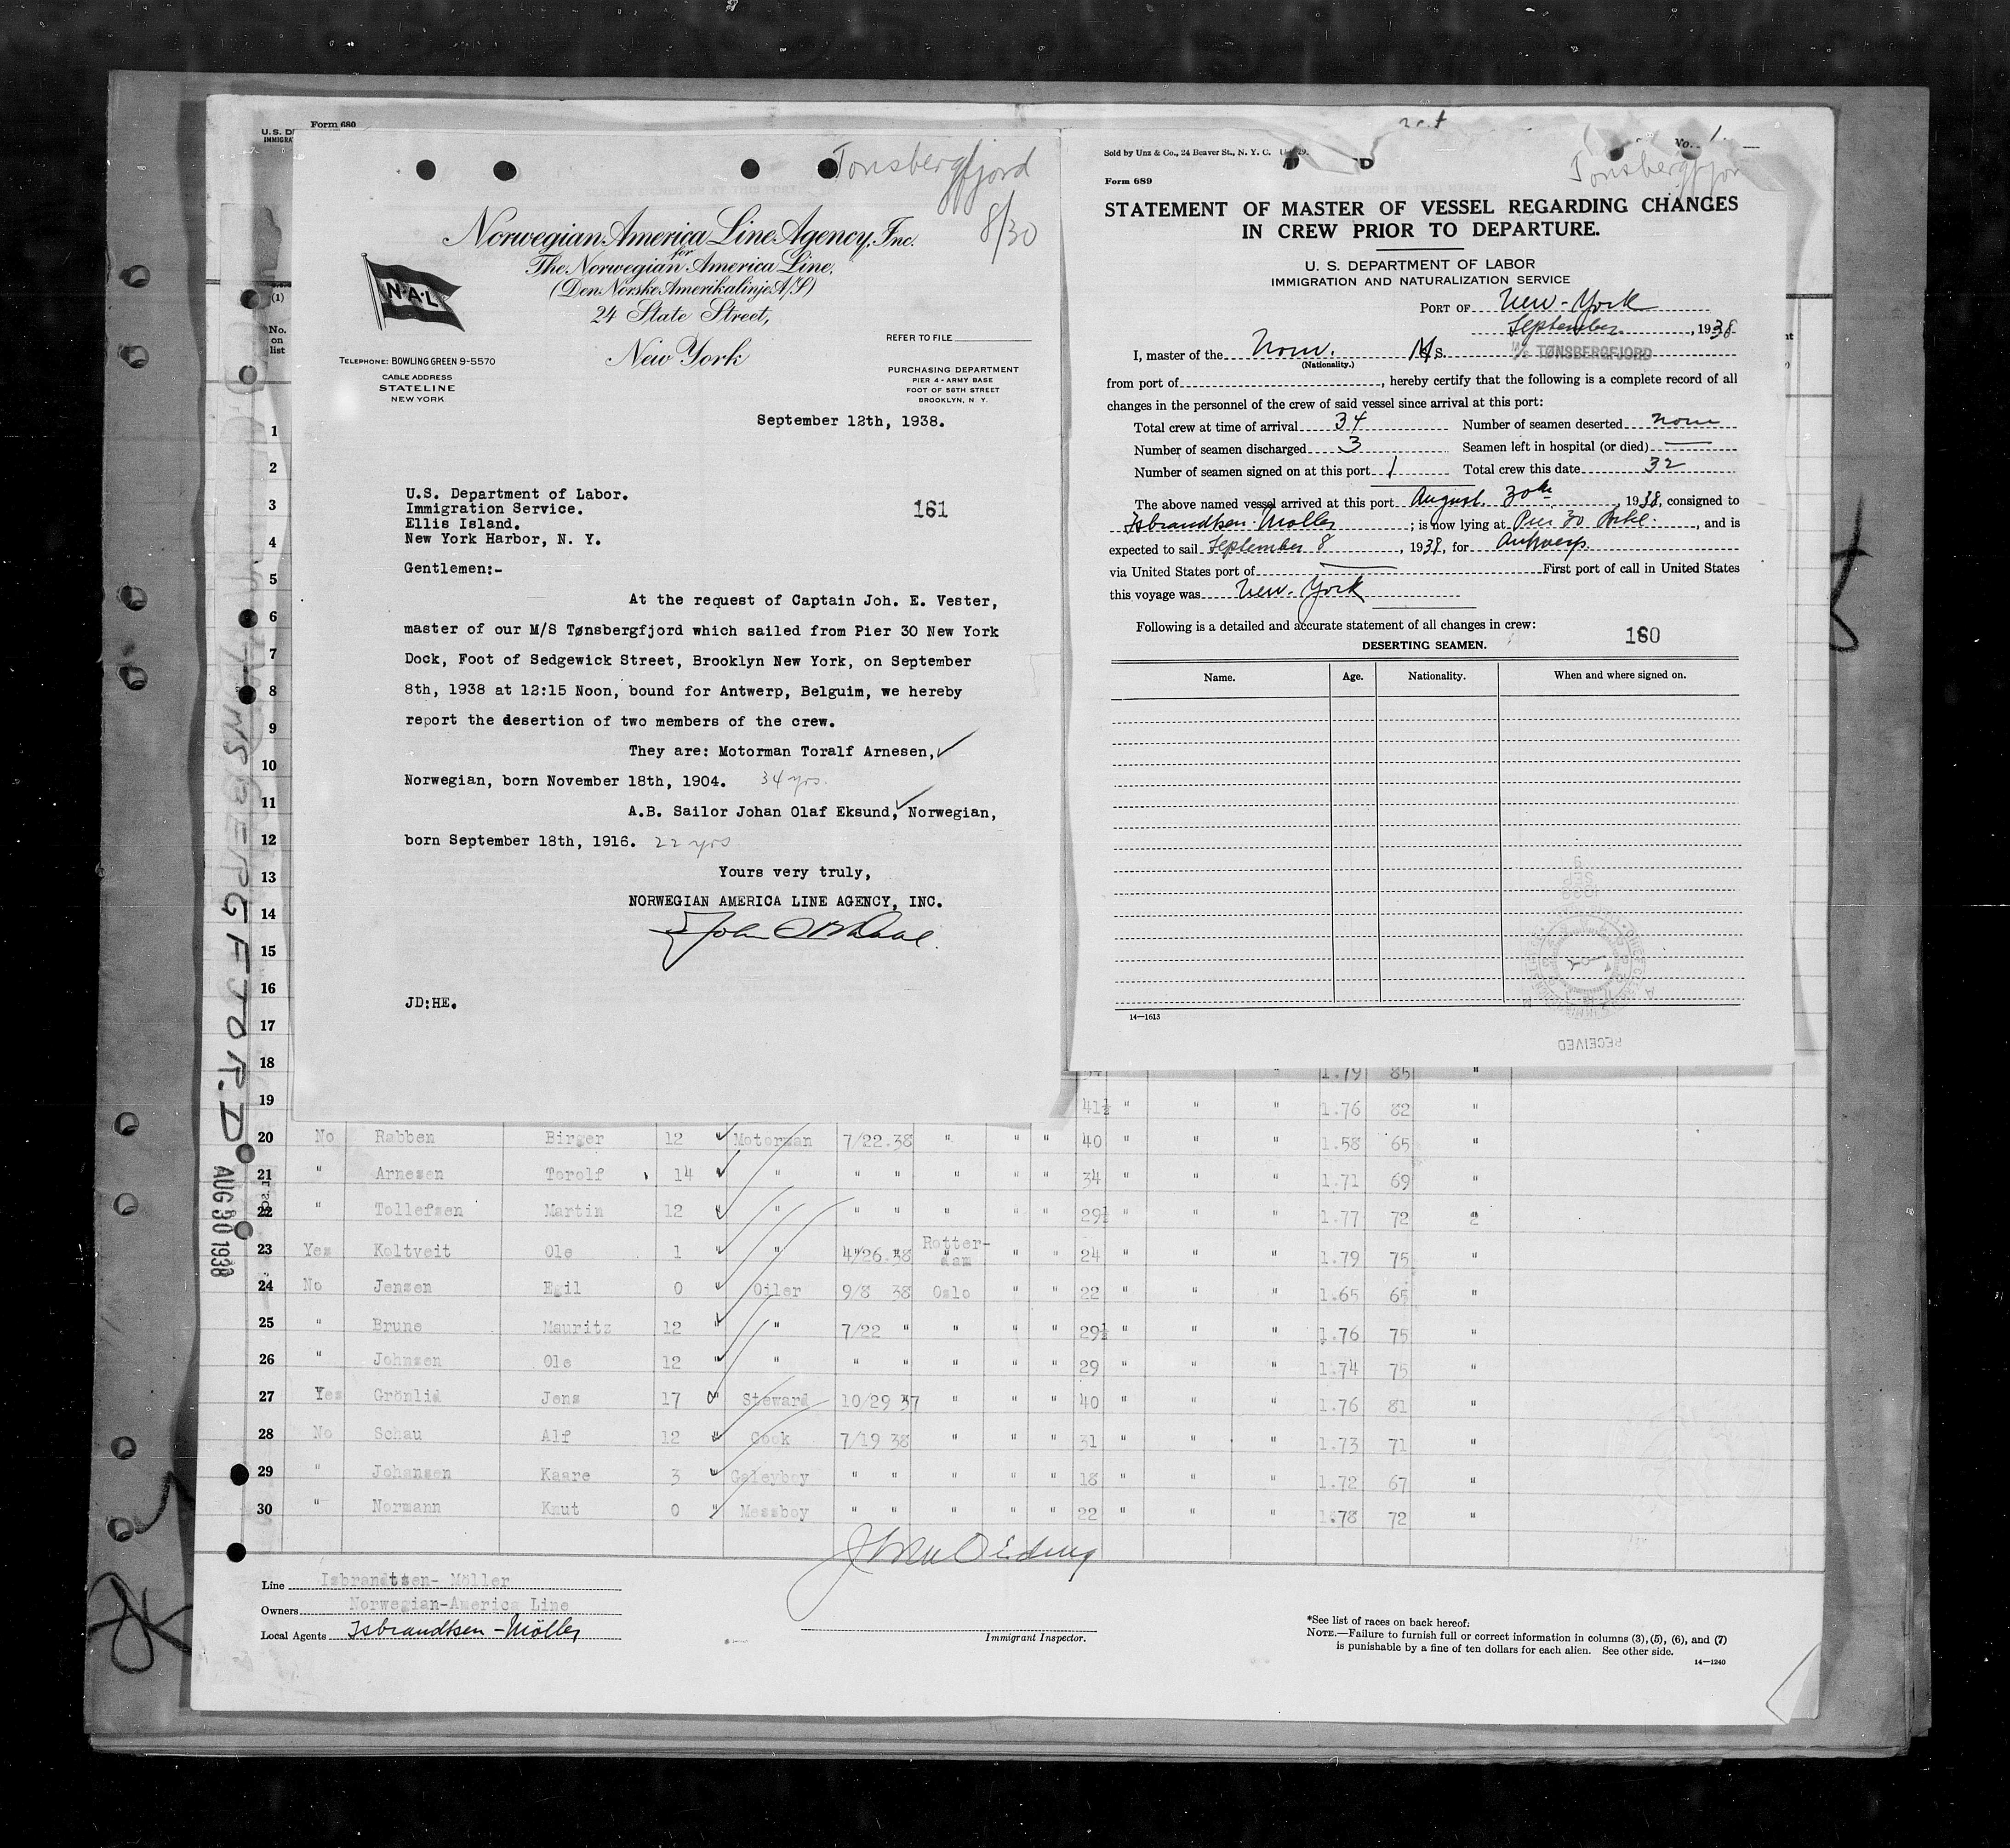 Form 680
U.S. D
IMMIGRA
Tonsbergfjord
8/30
Norwegian America Line Agency, Inc.
for
The Norwegian America Line,
(Den Norske Amerikalinje A/S)
24 State Street,
New York
N·A·L
TELEPHONE: BOWLING GREEN 9-5570
CABLE ADDRESS
STATELINE
NEW YORK
REFER TO FILE
PURCHASING DEPARTMENT
PIER 4 - ARMY BASE
FOOT OF 58TH STREET
BROOKLYN, N. Y.
September 12th, 1938.
U.S. Department of Labor.
Immigration Service.
Ellis Island.
New York Harbor, N. Y.
161
Gentlemen:-
At the request of Captain Joh. E. Vester,
master of our M/S Tønsbergfjord which sailed from Pier 30 New York
Dock, Foot of Sedgewick Street, Brooklyn New York, on September
8th, 1938 at 12:15 Noon, bound for Antwerp, Belguim, we hereby
report the desertion of two members of the crew.
They are: Motorman Toralf Arnesen,
Norwegian, born November 18th, 1904. 34 yrs.
A.B. Sailor Johan Olaf Eksund, Norwegian,
born September 18th, 1916. 22 yrs
Yours very truly,
NORWEGIAN AMERICA LINE AGENCY, INC.
JD:HE.
Sold by Unz & Co., 24 Beaver St., N. Y. C.
No. 1.
Form 689
Tonsbergfjor
STATEMENT OF MASTER OF VESSEL REGARDING CHANGES
IN CREW PRIOR TO DEPARTURE.
U. S. DEPARTMENT OF LABOR
IMMIGRATION AND NATURALIZATION SERVICE
PORT OF New-York
September, 1938
I, master of the Norw. M/S. M/S TØNSBERGFJORD
(Nationality.)
from port of, hereby certify that the following is a complete record of all
changes in the personnel of the crew of said vessel since arrival at this port:
Total crew at time of arrival 34 Number of seamen deserted none
Number of seamen discharged 3 Seamen left in hospital (or died)
Number of seamen signed on at this port 1 Total crew this date 32
The above named vessel arrived at this port August 30th, 1938, consigned to
Isbrandtsen-Moller; is now lying at Pier 30 Bkl., and is
expected to sail September 8, 1938, for Antwerp.
via United States port of First port of call in United States
this voyage was New-York
Following is a detailed and accurate statement of all changes in crew:
180
DESERTING SEAMEN.
Name. Age. Nationality. When and where signed on.
14—1613
RECEIVED
(1)
No.
on
list
1
2
3
4
5
6
7
8
9
10
11
12
13
14
15
16
17
18 1.79 85 "
19 41½ " " " 1.76 82 "
20 No Rabben Birger 12 " Motorman 7/22.38 " " " 40 " " " 1.58 65 "
21 " Arnesen Torolf 14 " " " " " " " 34 " " " 1.71 69 "
22 " Tollefsen Martin 12 " " " " " " " 29½ " " " 1.77 72 "
23 Yes Koltveit Ole 1 " " 4/26.38 Rotter-dam " " 24 " " " 1.79 75 "
24 No Jensen Egil 0 " Oiler 9/8 38 Oslo " " 22 " " " 1.65 65 "
25 " Brune Mauritz 12 " " 7/22 " " " " 29½ " " " 1.76 75 "
26 " Johnsen Ole 12 " " " " " " " 29 " " " 1.74 75 "
27 Yes Grönlid Jens 17 " Steward 10/29 37 " " " 40 " " " 1.76 81 "
28 No Schau Alf 12 " Cook 7/19 38 " " " 31 " " " 1.73 71 "
29 " Johansen Kaare 3 " Galeyboy " " " " " 18 " " " 1.72 67 "
30 " Normann Knut 0 " Messboy " " " " " 22 " " " 1.78 72 "
AUG 30 1938
Line Isbrandtsen- Möller
Owners Norwegian-America Line
Local Agents Isbrandtsen-Möller
Immigrant Inspector.
*See list of races on back hereof.
NOTE.—Failure to furnish full or correct information in columns (3), (5), (6), and (7)
is punishable by a fine of ten dollars for each alien. See other side.
14—1240